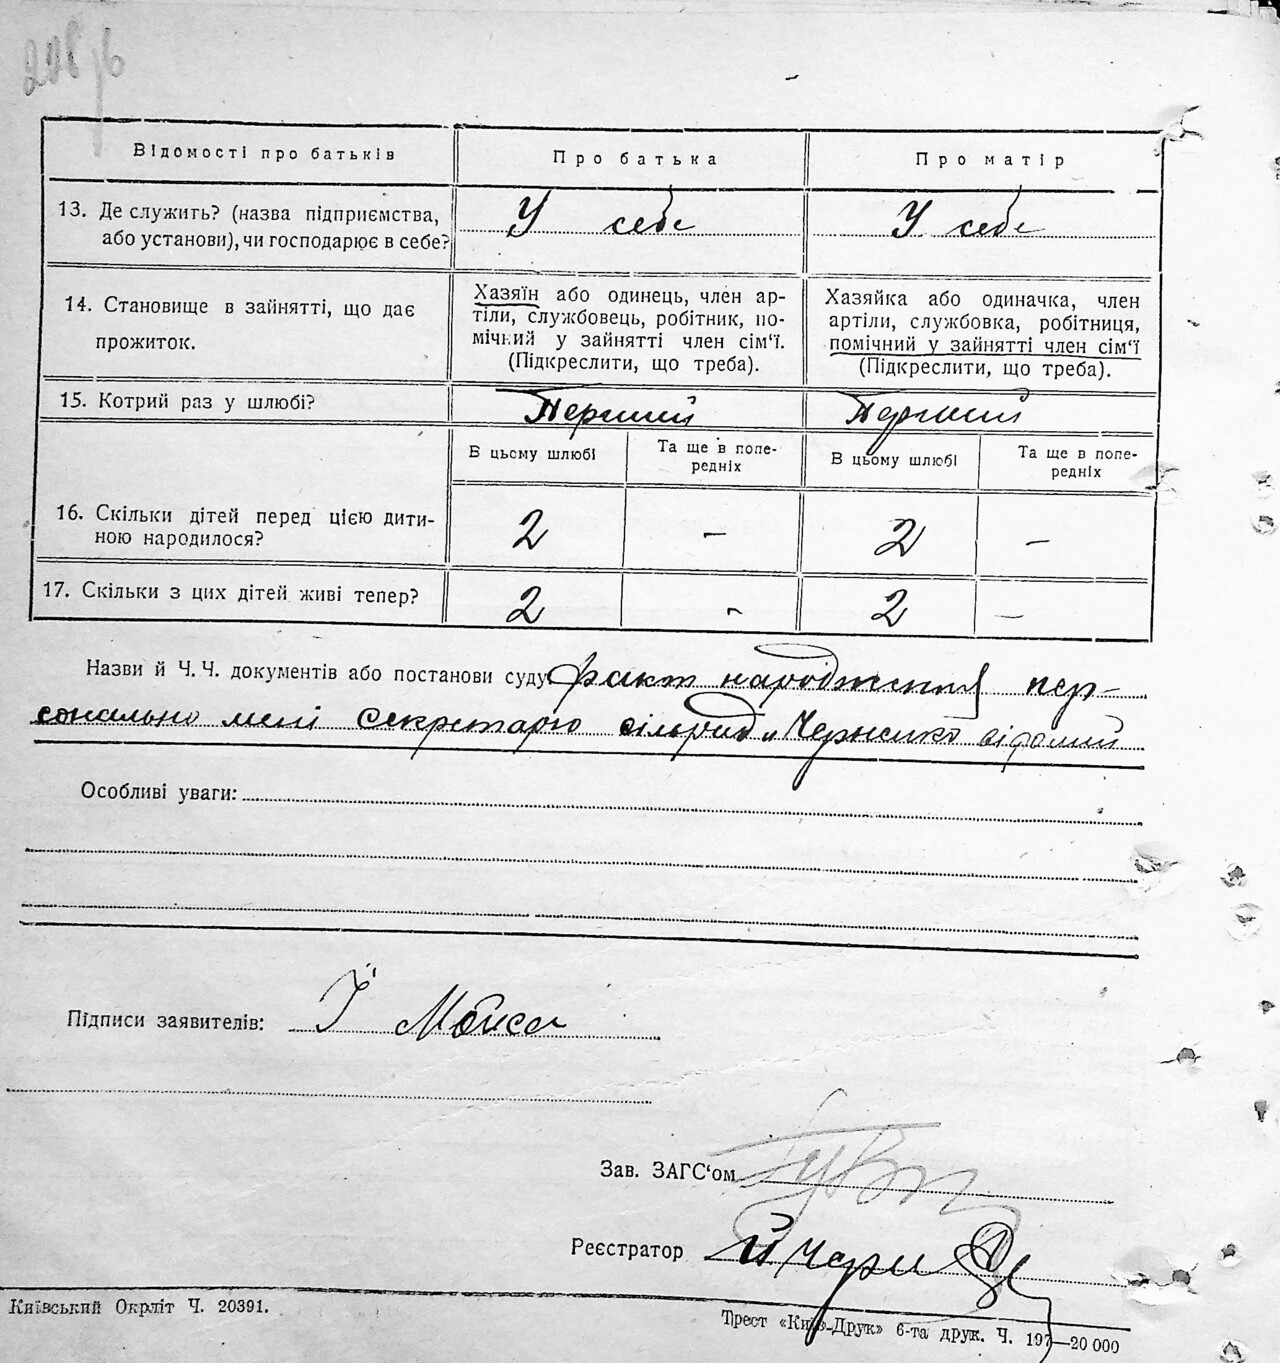 Відомості про батьків Про батька Про матір
13. Де служить? (назва підприємства, або установи), чи господарює в себе? У себе У себе
14. Становище в зайнятті, що дає прожиток.
Хазяїн або одинець, член ар-
тіли, службовець, робітник, по-
мічний у зайнятті член сім‘ї.
(Підкреслити, що треба).
Хазяйка або одиначка, член
артіли, службовка, робітниця,
помічний у зайнятті член сім‘ї
(Підкреслити, що треба).
15. Котрий раз у шлюбі? Перший Перший
В цьому шлюбі Та ще в попе-
редніх В цьому шлюбі Та ще в попе-
редніх
16. Скільки дітей перед цією дити-
ною народилося? 2 - 2 -
17. Скільки з цих дітей живі тепер? 2 - 2 -
Назви й Ч. Ч. документів або постанови суду факт народження пер-
сонально мені секретарю сільради відомий
Особливі уваги:
Підписи заявителів:
Зав. ЗАГС‘ом
Реєстратор
Київський Окрліт Ч. 20391.
Трест «Київ-Друк» 6-та друк. Ч. 197—20 000